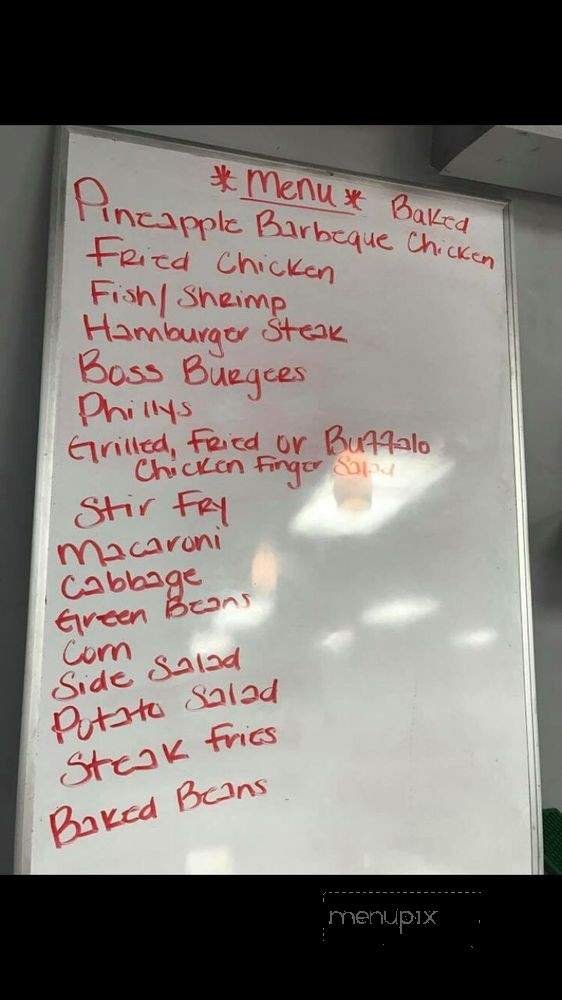 *Menu*
Baked
Pineapple Barbeque Chicken
Fried Chicken
Fish/Shrimp
Hamburger Steak
Boss Burgers
Phillys
Grilled, Fried or Buffalo
Chicken Finger Salad
Stir Fry
Macaroni
Cabbage
Green Beans
Corn
Side Salad
Potato Salad
Steak Fries
Baked Beans
menupix